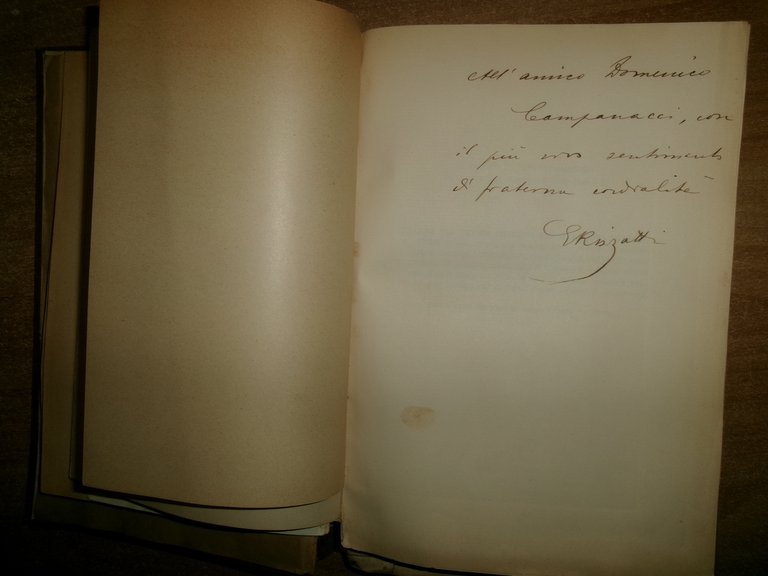 All' amico Domenico
Campanacci, con
il più vivo sentimento
di fraterna cordialità
E Rizzatti